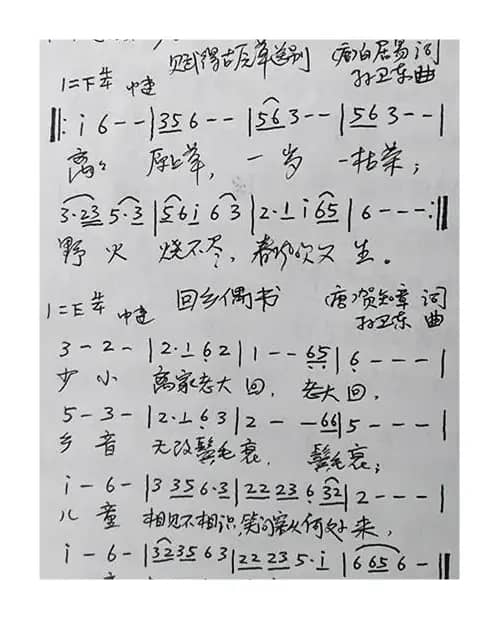 赋得古原草送别 (唐)白居易 词
1=F 4/4 中速 孙卫东 曲
‖: i 6 - - | 3 5 6 - - | 5 6 3 - - | 5 6 3 - - |
离々 原上草, 一岁 一枯荣;
3·2 3 5·3 | 5 6 i 6 3 | 2·1 i 6 5 | 6 - - - :‖
野火 烧不尽, 春吹又生。
1=E 4/4 中速 回乡偶书 (唐)贺知章 词
孙卫东 曲
3 - 2 - | 2·1 6 2 | 1 - - 6 5 | 6 - - - |
少小 离家老大回, 老大回,
5 - 3 - | 2·1 6 3 | 2 - - 6 6 | 5 - - - |
乡音 无改鬓毛衰, 鬓毛衰;
i - 6 - | 3 3 5 6·3 | 2 2 2 3 6 3 2 | 2 - - - |
儿童 相见不相识, 笑问客从何处来,
i - 6 - | 3 2 3 5 6 3 | 2 2 2 3 5·i | 6 6 5 6 - ‖